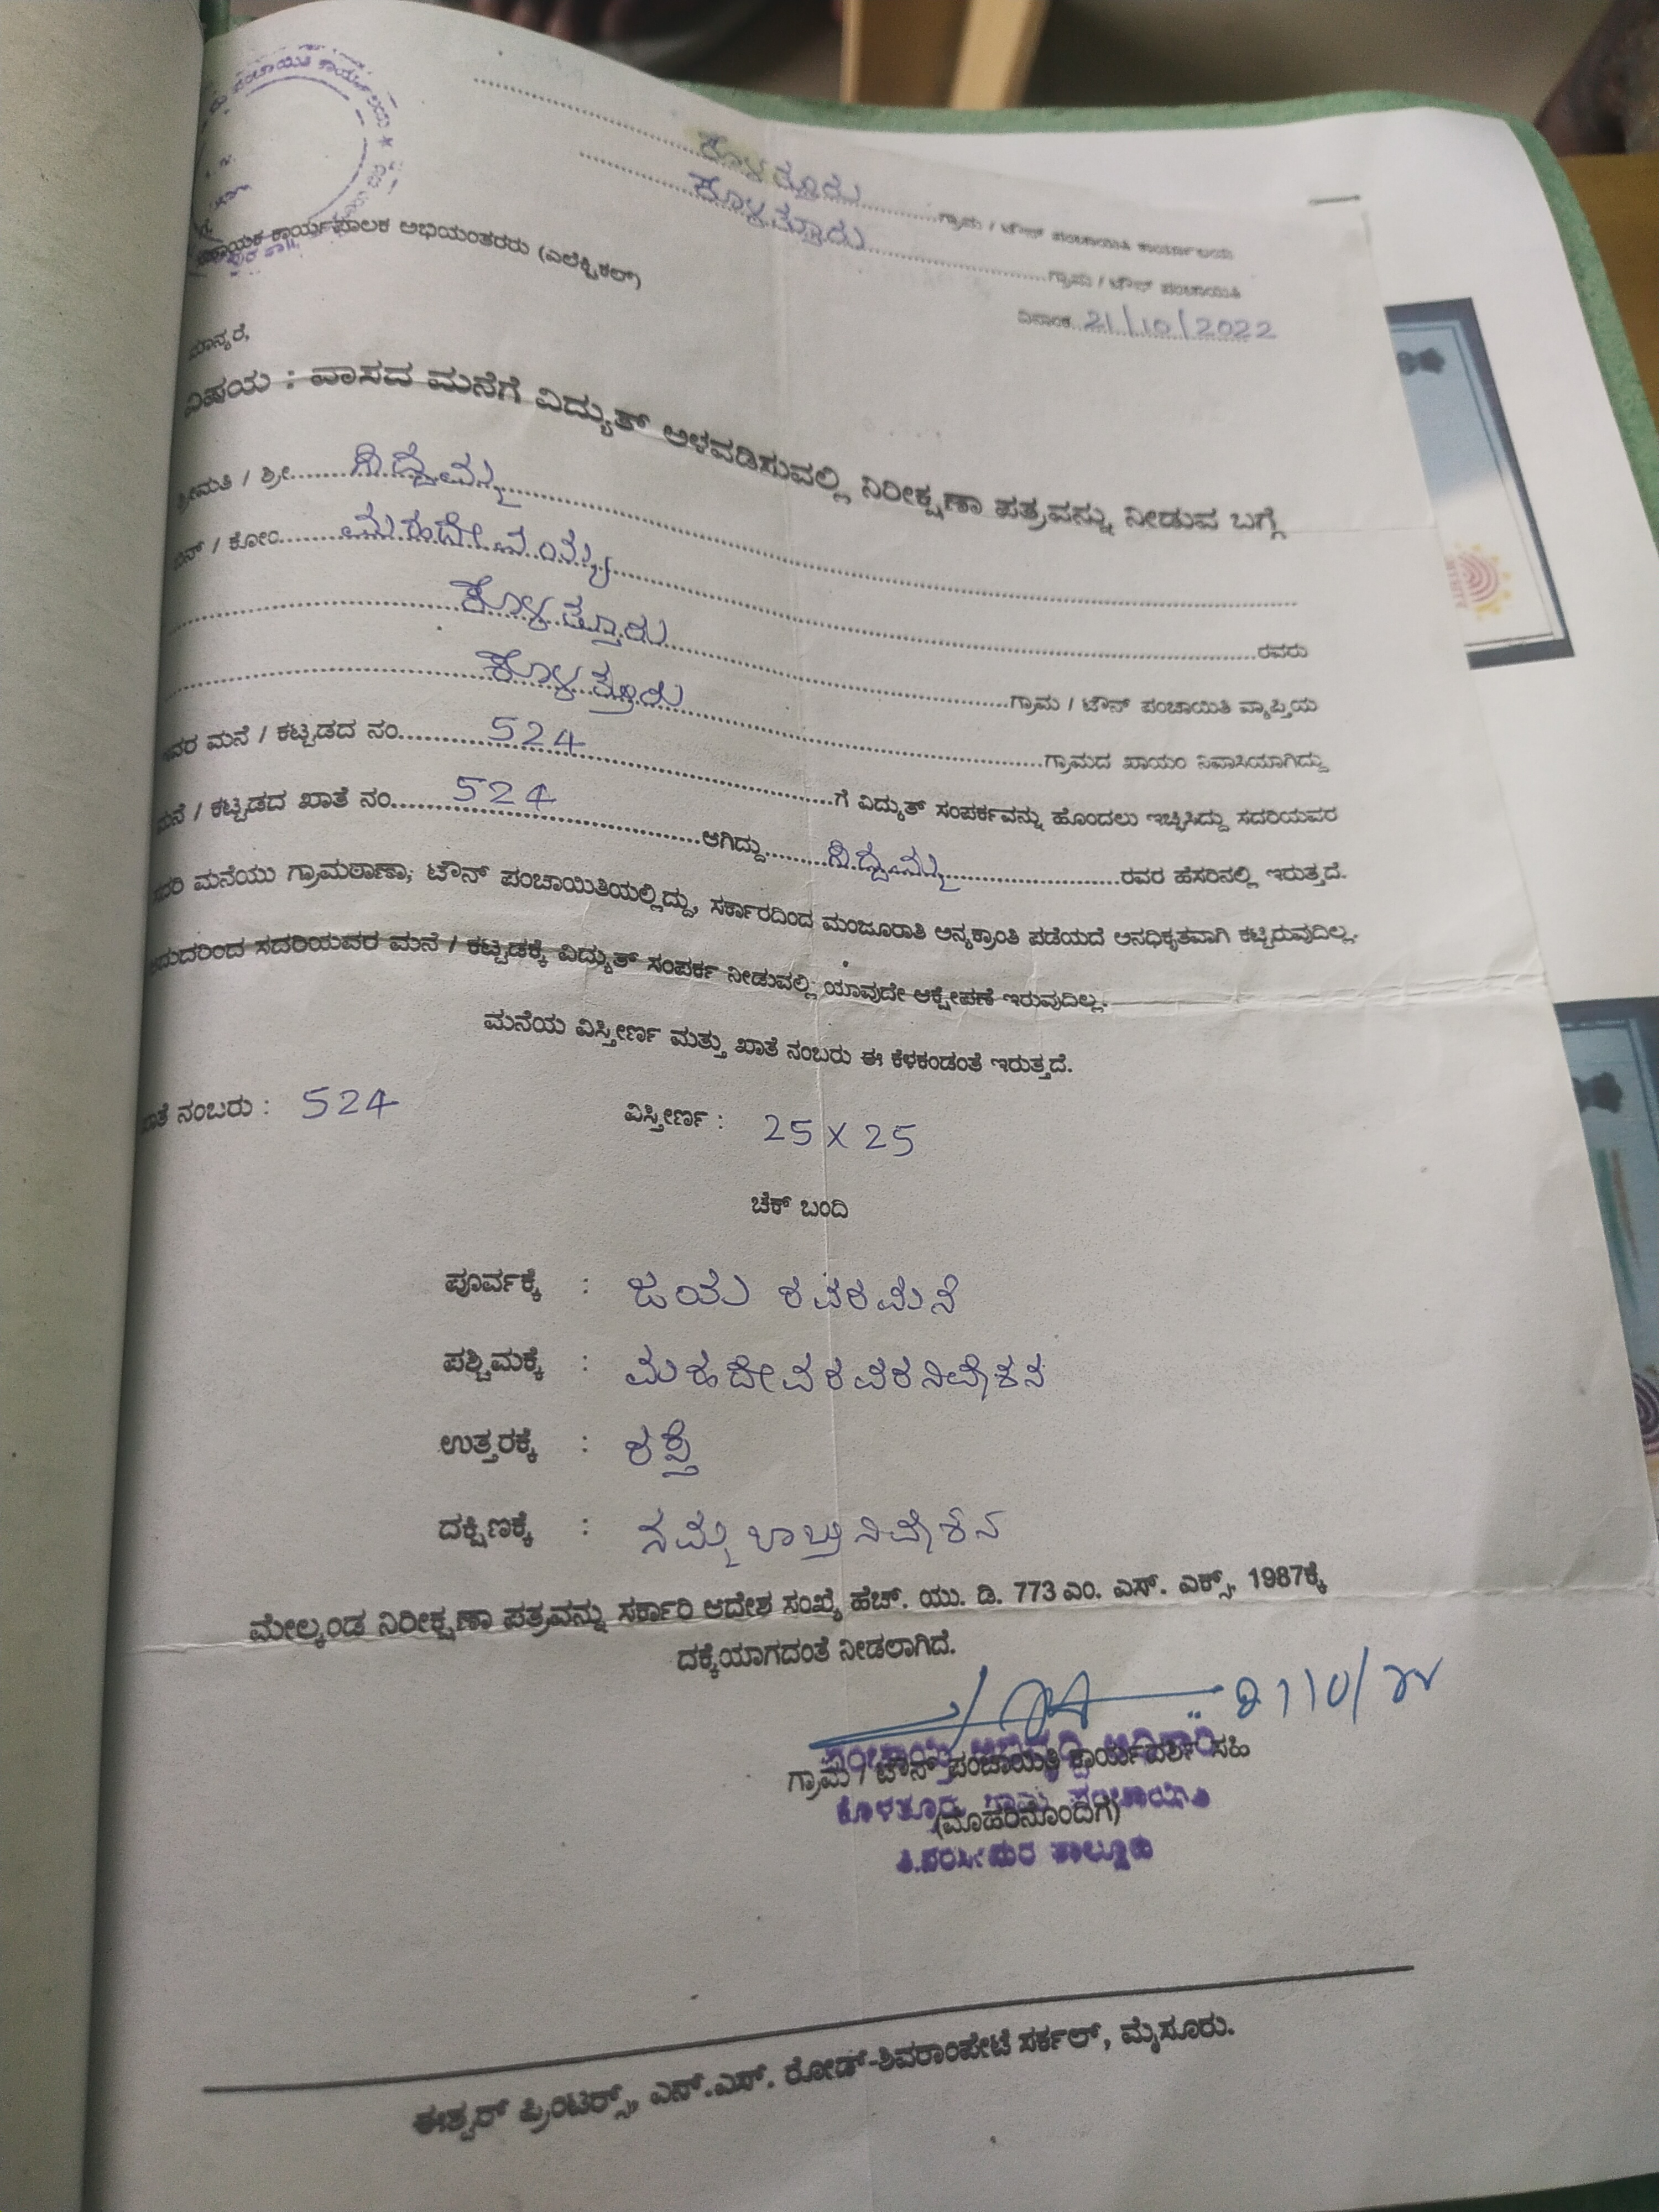 ಕೊಳತ್ತೂರು ಗ್ರಾಮ / ಟೌನ್ ಪಂಚಾಯಿತಿ ಕಾರ್ಯಾಲಯ
ಕೊಳತ್ತೂರು ಗ್ರಾಮ / ಟೌನ್ ಪಂಚಾಯಿತಿ
ದಿನಾಂಕ 21/10/2022
ಪಂಚಾಯಿತಿ ಕಾರ್ಯಾಲಯ
ಸಹಾಯಕ ಕಾರ್ಯಪಾಲಕ ಅಭಿಯಂತರರು (ಎಲೆಕ್ಟ್ರಿಕಲ್)
ಮಾನ್ಯರೆ,
ವಿಷಯ : ವಾಸದ ಮನೆಗೆ ವಿದ್ಯುತ್ ಅಳವಡಿಸುವಲ್ಲಿ ನಿರೀಕ್ಷಣಾ ಪತ್ರವನ್ನು ನೀಡುವ ಬಗ್ಗೆ
ಶ್ರೀಮತಿ / ಶ್ರೀ
ಬಿನ್ / ಕೋಂ ಮಹದೇವಯ್ಯ ರವರು
ಕೊಳತ್ತೂರು ಗ್ರಾಮ / ಟೌನ್ ಪಂಚಾಯಿತಿ ವ್ಯಾಪ್ತಿಯ
ಕೊಳತ್ತೂರು ಗ್ರಾಮದ ಖಾಯಂ ನಿವಾಸಿಯಾಗಿದ್ದು
ಇವರ ಮನೆ / ಕಟ್ಟಡದ ನಂ. 524 ಗೆ ವಿದ್ಯುತ್ ಸಂಪರ್ಕವನ್ನು ಹೊಂದಲು ಇಚ್ಛಿಸಿದ್ದು ಸದರಿಯವರ
ಮನೆ / ಕಟ್ಟಡದ ಖಾತೆ ನಂ. 524 ಆಗಿದ್ದು ರವರ ಹೆಸರಿನಲ್ಲಿ ಇರುತ್ತದೆ.
ಸದರಿ ಮನೆಯು ಗ್ರಾಮಠಾಣಾ, ಟೌನ್ ಪಂಚಾಯಿತಿಯಲ್ಲಿದ್ದು, ಸರ್ಕಾರದಿಂದ ಮಂಜೂರಾತಿ ಅನ್ಯಕ್ರಾಂತಿ ಪಡೆಯದೆ ಅನಧಿಕೃತವಾಗಿ ಕಟ್ಟಿರುವುದಿಲ್ಲ.
ಆದುದರಿಂದ ಸದರಿಯವರ ಮನೆ / ಕಟ್ಟಡಕ್ಕೆ ವಿದ್ಯುತ್ ಸಂಪರ್ಕ ನೀಡುವಲ್ಲಿ ಯಾವುದೇ ಆಕ್ಷೇಪಣೆ ಇರುವುದಿಲ್ಲ.
ಮನೆಯ ವಿಸ್ತೀರ್ಣ ಮತ್ತು ಖಾತೆ ನಂಬರು ಈ ಕೆಳಕಂಡಂತೆ ಇರುತ್ತದೆ.
ಖಾತೆ ನಂಬರು : 524 ವಿಸ್ತೀರ್ಣ : 25 x 25
ಚೆಕ್ ಬಂದಿ
ಪೂರ್ವಕ್ಕೆ : ಜಯ ರವರ ಮನೆ
ಪಶ್ಚಿಮಕ್ಕೆ : ಮಹದೇವರವರ ನಿವೇಶನ
ಉತ್ತರಕ್ಕೆ : ರಸ್ತೆ
ದಕ್ಷಿಣಕ್ಕೆ : ನಮ್ಮ ಬಾಬ್ತು ನಿವೇಶನ
ಮೇಲ್ಕಂಡ ನಿರೀಕ್ಷಣಾ ಪತ್ರವನ್ನು ಸರ್ಕಾರಿ ಆದೇಶ ಸಂಖ್ಯೆ ಹೆಚ್. ಯು. ಡಿ. 773 ಎಂ. ಎಸ್. ಎಕ್ಸ್. 1987ಕ್ಕೆ
ದಕ್ಕೆಯಾಗದಂತೆ ನೀಡಲಾಗಿದೆ.
ಪಂಚಾಯ್ತಿ ಅಭಿವೃದ್ಧಿ ಅಧಿಕಾರಿ
ಗ್ರಾಮ / ಟೌನ್ ಪಂಚಾಯತಿ ಕಾರ್ಯದರ್ಶಿ ಸಹಿ
ಕೊಳತೂರು ಗ್ರಾಮ ಪಂಚಾಯಿತಿ
(ಮೊಹರಿನೊಂದಿಗೆ)
ತಿ.ನರಸೀಪುರ ತಾಲ್ಲೂಕು
ಈಶ್ವರ್ ಪ್ರಿಂಟರ್ಸ್, ಎನ್.ಎಸ್. ರೋಡ್-ಶಿವರಾಂಪೇಟೆ ಸರ್ಕಲ್, ಮೈಸೂರು.